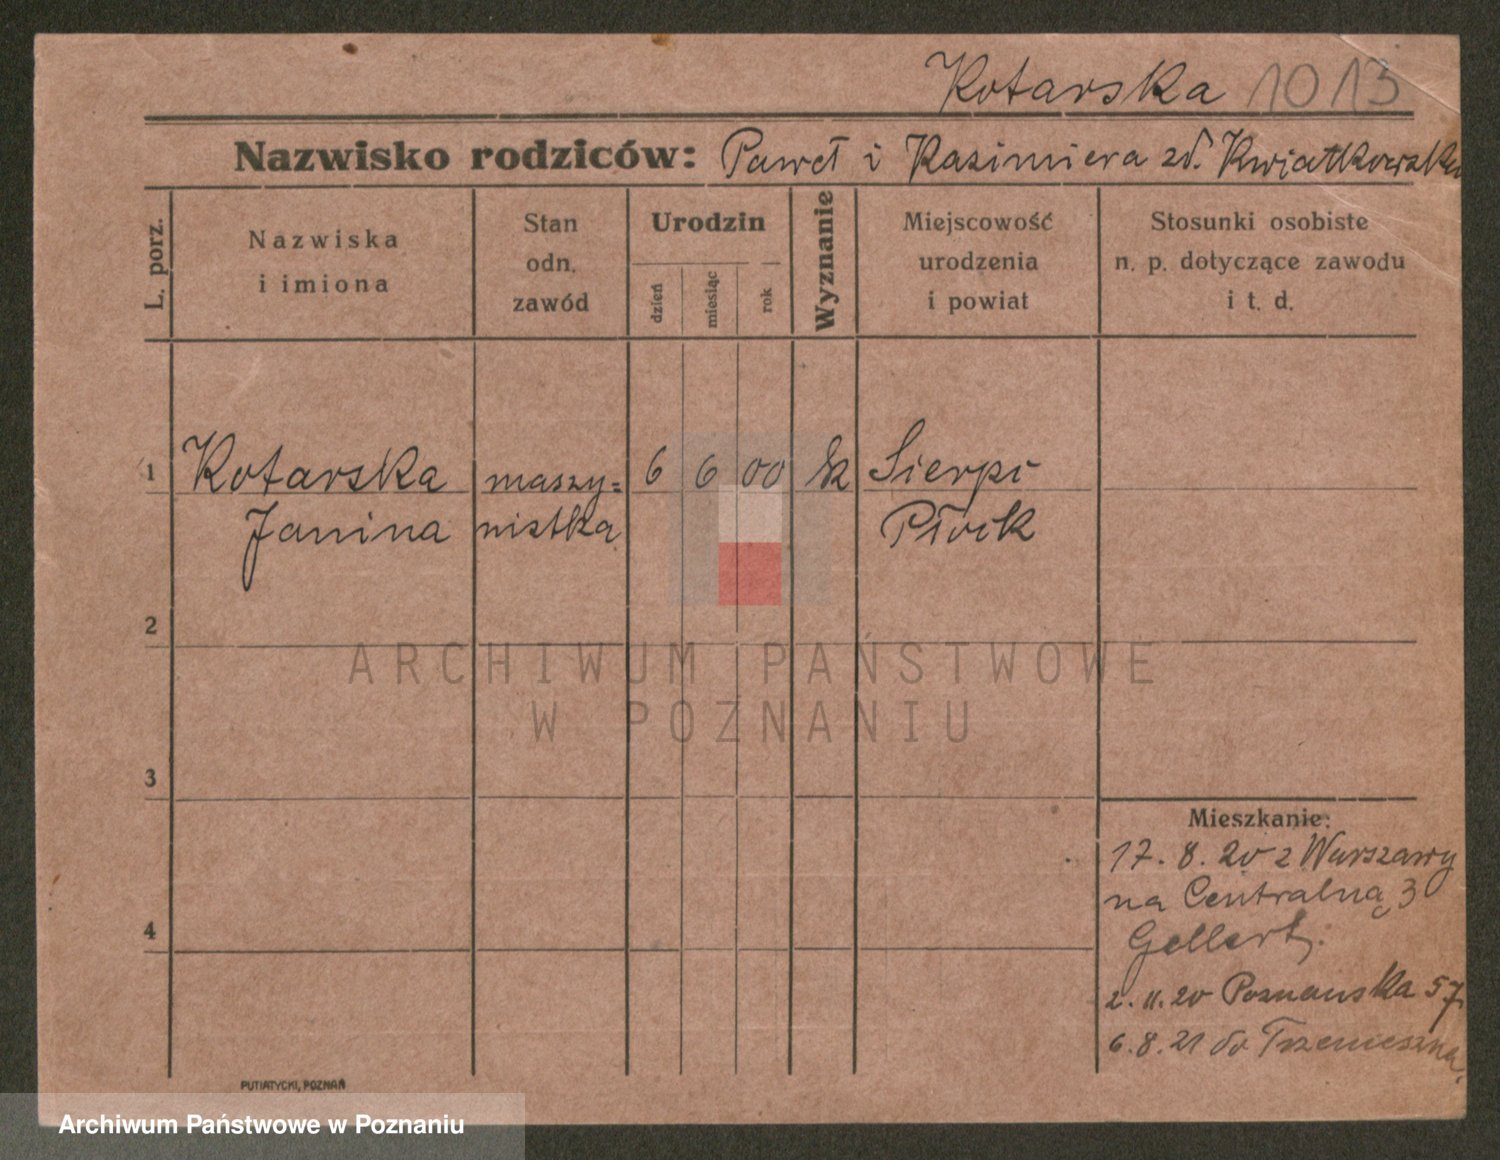 Kotarska 1013
Nazwisko rodziców: Paweł i Kazimiera zd. Kwiatkowska
L. porz.
Nazwiska
i imiona
Stan
odn.
zawód
Urodzin
dzień
miesiąc
rok
Wyznanie
Miejscowość
urodzenia
i powiat
Stosunki osobiste
n. p. dotyczące zawodu
i t. d.
1 Kotarska maszy= 6 6 00 rk Sierpc
Janina nistka Płock
2
3
4
Mieszkanie:
17. 8. 20 z Warszawy
na Centralną 3
Gellert
2. 11. 20 Poznanska 57
6. 8. 21 do Trzemeszna
PUTIATYCKI, POZNAŃ
ARCHIWUM PAŃSTWOWE
W POZNANIU
Archiwum Państwowe w Poznaniu